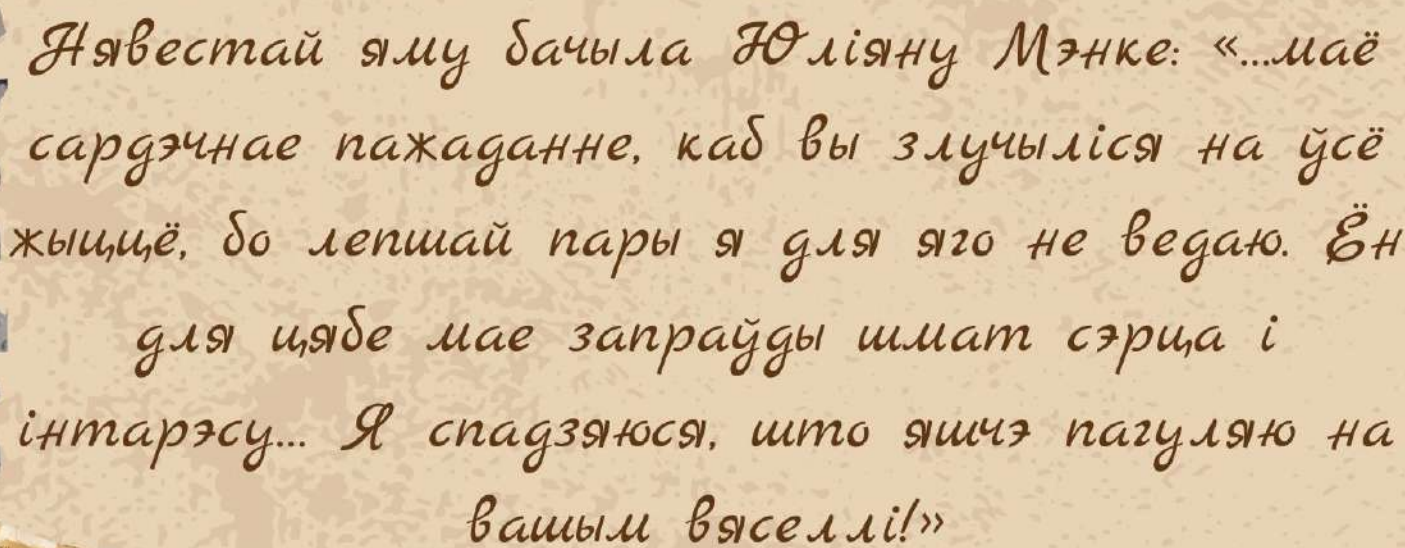 Нявестай яму бачыла Юліяну Мэнке: «...маё
сардэчнае пажаданне, каб вы злучыліся на ўсё
жыццё, бо лепшай пары я для яго не ведаю. Ён
для цябе мае запраўды шмат сэрца і
інтарэсу... Я спадзяюся, што яшчэ пагуляю на
вашым вяселлі!»